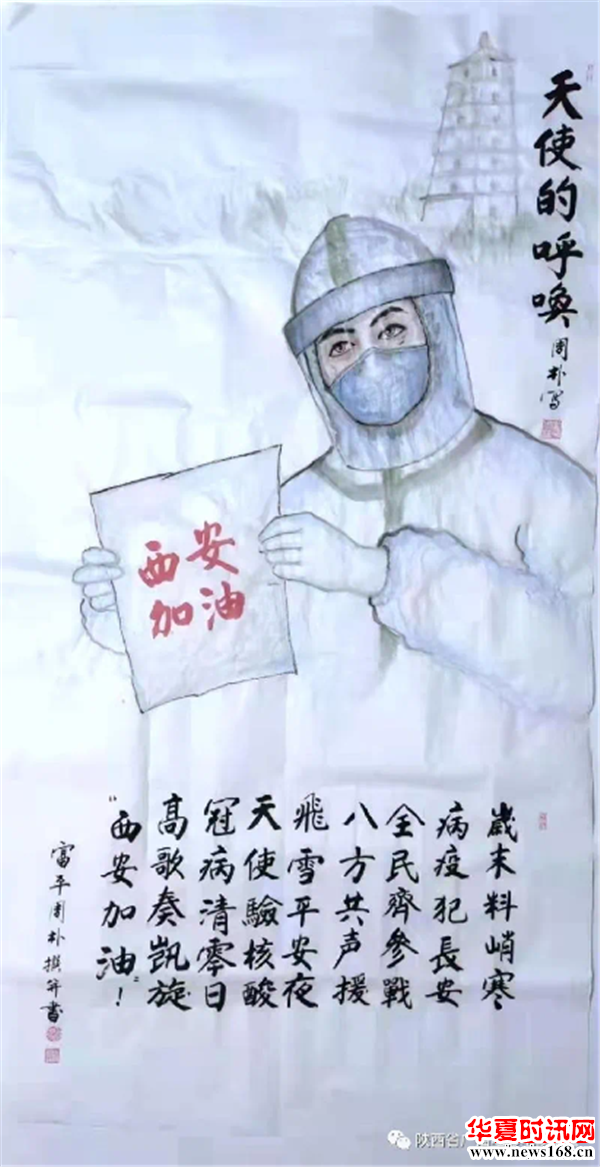 天使的呼喚
周朴写
西安
加油
歲末料峭寒
病疫犯長安
全民齊參戰
八方共声援
飛雪平安夜
天使驗核酸
冠病清零日
高歌奏凱旋
“西安加油”！
富平周朴撰并書
陕西省
华夏时讯网
www.news168.cn